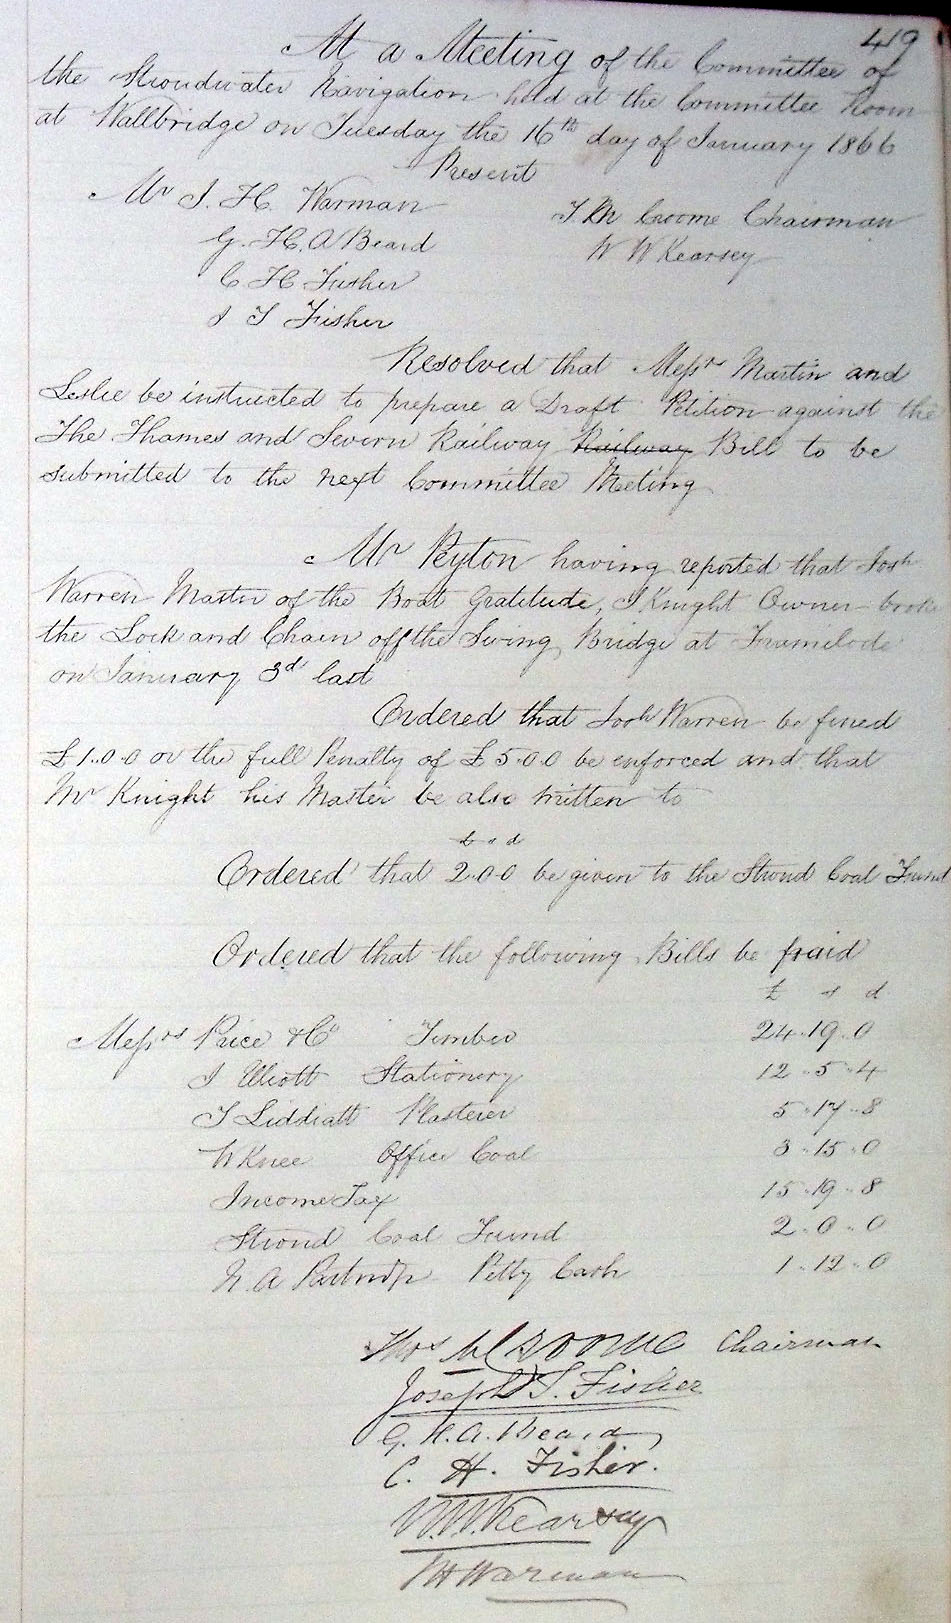 419
At a Meeting of the Committee of
the Stroudwater Navigation held at the Committee Room
at Wallbridge on Tuesday the 16th day of January 1866
Present
Mr J. H. Warman T M Croome Chairman
G. H. A Beard W W Kearsey
C H Fisher
J S Fisher
Resolved that Messrs Martin and
Leslie be instructed to prepare a Draft Petition against the
The Thames and Severn Railway Railway Bill to be
submitted to the next Committee Meeting
Mr Peyton having reported that Josh
Warren Master of the Boat Gratitude, J Knight Owner broke
the Lock and Chain off the Swing Bridge at Framilode
on January 3d last
Ordered that Josh Warren be fined
£1..0.0 or the full Penalty of £5.0.0 be enforced and that
Mr Knight his Master be also written to
£ s d
Ordered that 2.0.0 be given to the Stroud Coal Fund
Ordered that the following Bills be paid
£ s d
Messrs Price & Co Timber 24.19.0
J Elliott Stationery 12..5..4
T Liddiatt Plasterer 5..17..8
W Knee Office Coal 3..15..0
Income Tax 15..19..8
Stroud Coal Fund 2..0..0
A Partridge Petty Cash 1..12..0
Thos M Croome Chairman
Joseph S. Fisher
G. H. A. Beard
C. H. Fisher.
W. W. Kearsey
J H Warman